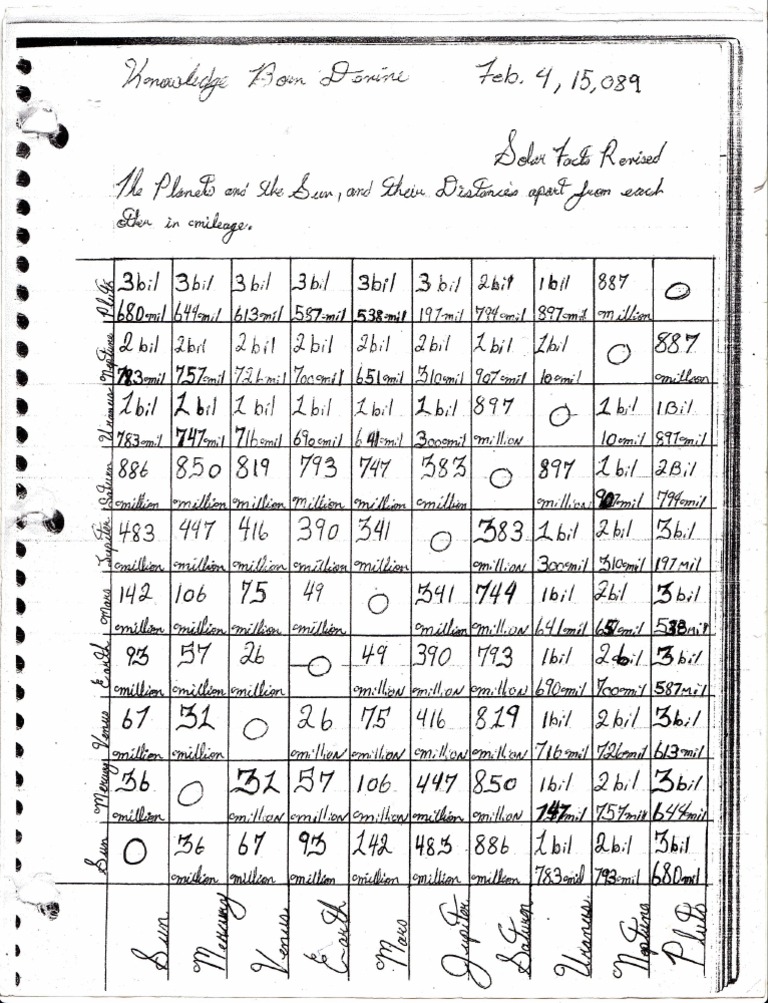 Knowledge Born Devine Feb. 4, 15,089
Solar Facts Revised
The Planets and the Sun, and their Distances apart from each
other in mileage.
Pluto 3bil 3bil 3bil 3bil 3bil 3bil 2bil 1bil 887 0
680mil 644mil 613mil 587mil 538mil 197mil 794mil 897mil million
Neptune 2bil 2bil 2bil 2bil 2bil 2bil 1bil 1bil 0 887
793mil 757mil 726mil 700mil 651mil 310mil 907mil 10mil million
Uranus 1bil 1bil 1bil 1bil 1bil 1bil 897 0 1bil 1Bil
783mil 747mil 716mil 690mil 641mil 300mil million 10mil 897mil
Saturn 886 850 819 793 747 383 0 897 1bil 2Bil
million million million Million million million million 907mil 794mil
Jupiter 483 447 416 390 341 0 383 1bil 2bil 3bil
million million million million million million 300mil 310mil 197mil
Mars 142 106 75 49 0 341 744 1bil 2bil 3bil
million million million million million million 641mil 651mil 538mil
Earth 93 57 26 0 49 390 793 1bil 2bil 3bil
million million million million million million 690mil 700mil 587mil
Venus 67 31 0 26 75 416 819 1bil 2bil 3bil
million million million million million million 716mil 726mil 613mil
Mercury 36 0 31 57 106 447 850 1bil 2bil 3bil
million million million million million million 747mil 757mil 644mil
Sun 0 36 67 93 142 483 886 1bil 2bil 3bil
million million million million million million 783mil 793mil 680mil
Sun Mercury Venus Earth Mars Jupiter Saturn Uranus Neptune Pluto